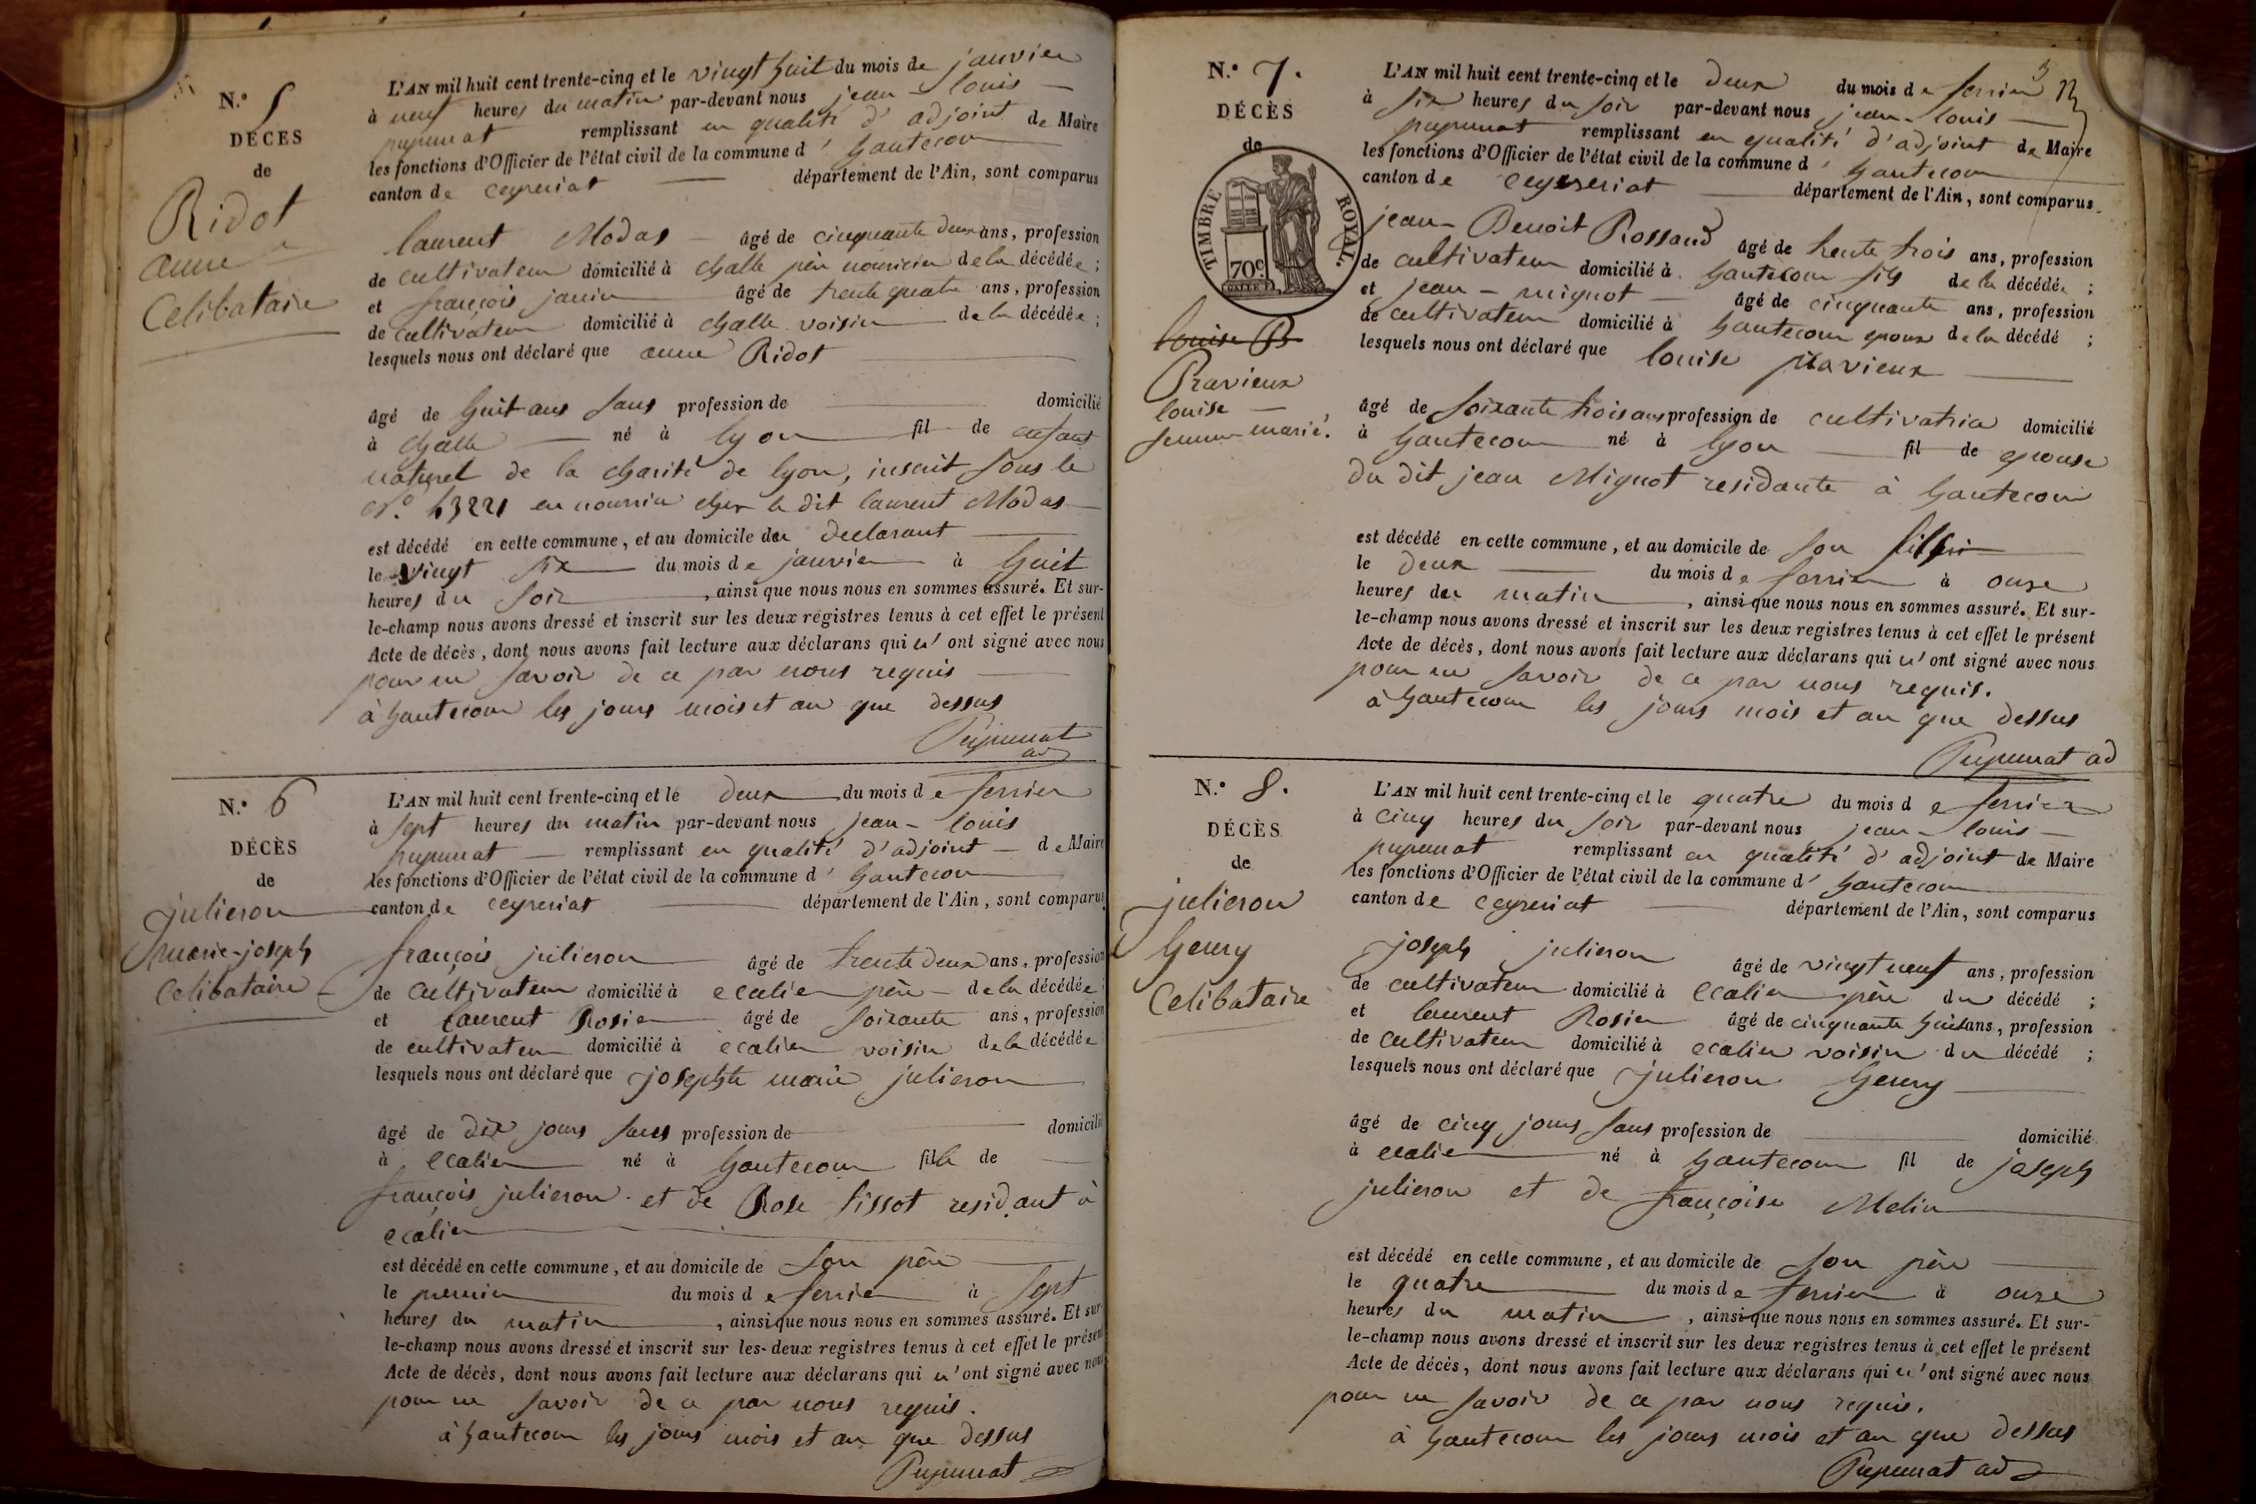 N.° 5
DÉCÈS
de
Ridot
anne
Celibataire
L'AN mil huit cent trente-cinq et le vingt huit du mois de janvier
à neuf heures du matin par-devant nous jean - louis
pupunat remplissant en qualité d'adjoint de Maire
les fonctions d'Officier de l'état civil de la commune d'hautecour
canton de ceyzeriat département de l'Ain, sont comparus
laurent Modas âgé de cinquante deux ans, profession
de cultivateur domicilié à challe père nouricier de la décédée ;
et françois janin âgé de trente quatre ans, profession
de cultivateur domicilié à challe voisin de la décédée ;
lesquels nous ont déclaré que anne Ridot
âgé de huit ans sans profession de domicilié
à challe né à lyon fil de enfant
naturel de la charité de lyon, inscrit sous le
N.° 43221 en nourrice chez le dit laurent Modas
est décédé en cette commune, et au domicile du declarant
le vingt six du mois de janvier à huit
heures du soir , ainsi que nous nous en sommes assuré. Et sur-
le-champ nous avons dressé et inscrit sur les deux registres tenus à cet effet le présent
Acte de décès, dont nous avons fait lecture aux déclarans qui n'ont signé avec nous
pour ne savoir de ce par nous requis
à hautecour les jours mois et an que dessus
Pupunat
ad
N.° 6
DÉCÈS
de
julieron
marie-joseph
Celibataire
L'AN mil huit cent trente-cinq et le deux du mois de fevrier
à sept heures du matin par-devant nous jean - louis
pupunat remplissant en qualité d'adjoint de Maire
les fonctions d'Officier de l'état civil de la commune d'hautecour
canton de ceyzeriat département de l'Ain, sont comparus
françois julieron âgé de trente deux ans, profession
de cultivateur domicilié à ecalier père de la décédée
et laurent Rosier âgé de soixante ans, profession
de cultivateur domicilié à ecalier voisin de la décédée
lesquels nous ont déclaré que josephte marie julieron
âgé de dix jours sans profession de domicilié
à ecalier né à hautecour fille de
françois julieron et de Rose sissot residant à
ecalier
est décédé en cette commune, et au domicile de son père
le premier du mois de fevrier à sept
heures du matin , ainsi que nous nous en sommes assuré. Et sur
le-champ nous avons dressé et inscrit sur les deux registres tenus à cet effet le présent
Acte de décès, dont nous avons fait lecture aux déclarans qui n'ont signé avec nous
pour ne savoir de ce par nous requis.
à hautecour les jours mois et an que dessus
Pupunat
3
N.° 7.
DÉCÈS
de
TIMBRE ROYAL.
70c.
louise P
Pravieux
louise
femme marié.
L'AN mil huit cent trente-cinq et le deux du mois de fevrier
à six heures du soir par-devant nous jean - louis
pupunat remplissant en qualité d'adjoint de Maire
les fonctions d'Officier de l'état civil de la commune d'hautecour
canton de ceyzeriat département de l'Ain, sont comparus
jean - Benoit Rossand âgé de trente trois ans, profession
de cultivateur domicilié à hautecour fils de la décédée ;
et jean - mignot âgé de cinquante ans, profession
de cultivateur domicilié à hautecour epoux de la décédé ;
lesquels nous ont déclaré que louise pravieux
âgé de soixante trois ans profession de cultivatrice domicilié
à hautecour né à lyon fil de epouse
du dit jean Mignot residante à hautecour
est décédé en cette commune, et au domicile de son
le deux du mois de fevrier à onze
heures du matin , ainsi que nous nous en sommes assuré. Et sur-
le-champ nous avons dressé et inscrit sur les deux registres tenus à cet effet le présent
Acte de décès, dont nous avons fait lecture aux déclarans qui n'ont signé avec nous
pour ne savoir de ce par nous requis.
à hautecour les jours mois et an que dessus
Pupunat ad
N.° 8.
DÉCÈS
de
julieron
henry
Celibataire
L'AN mil huit cent trente-cinq et le quatre du mois de fevrier
à cinq heures du soir par-devant nous jean - louis
pupunat remplissant en qualité d'adjoint de Maire
les fonctions d'Officier de l'état civil de la commune d'hautecour
canton de ceyzeriat département de l'Ain, sont comparus
joseph julieron âgé de vingt neuf ans, profession
de cultivateur domicilié à ecalier père du décédé ;
et laurent Rosier âgé de cinquante huit ans, profession
de cultivateur domicilié à ecalier voisin du décédé ;
lesquels nous ont déclaré que julieron henry
âgé de cinq jours sans profession de domicilié
à ecalier né à hautecour fil de joseph
julieron et de françoise Melin
est décédé en cette commune, et au domicile de son père
le quatre du mois de fevrier à onze
heures du matin , ainsi que nous nous en sommes assuré. Et sur-
le-champ nous avons dressé et inscrit sur les deux registres tenus à cet effet le présent
Acte de décès, dont nous avons fait lecture aux déclarans qui n'ont signé avec nous
pour ne savoir de ce par nous requis.
à hautecour les jours mois et an que dessus
Pupunat ad